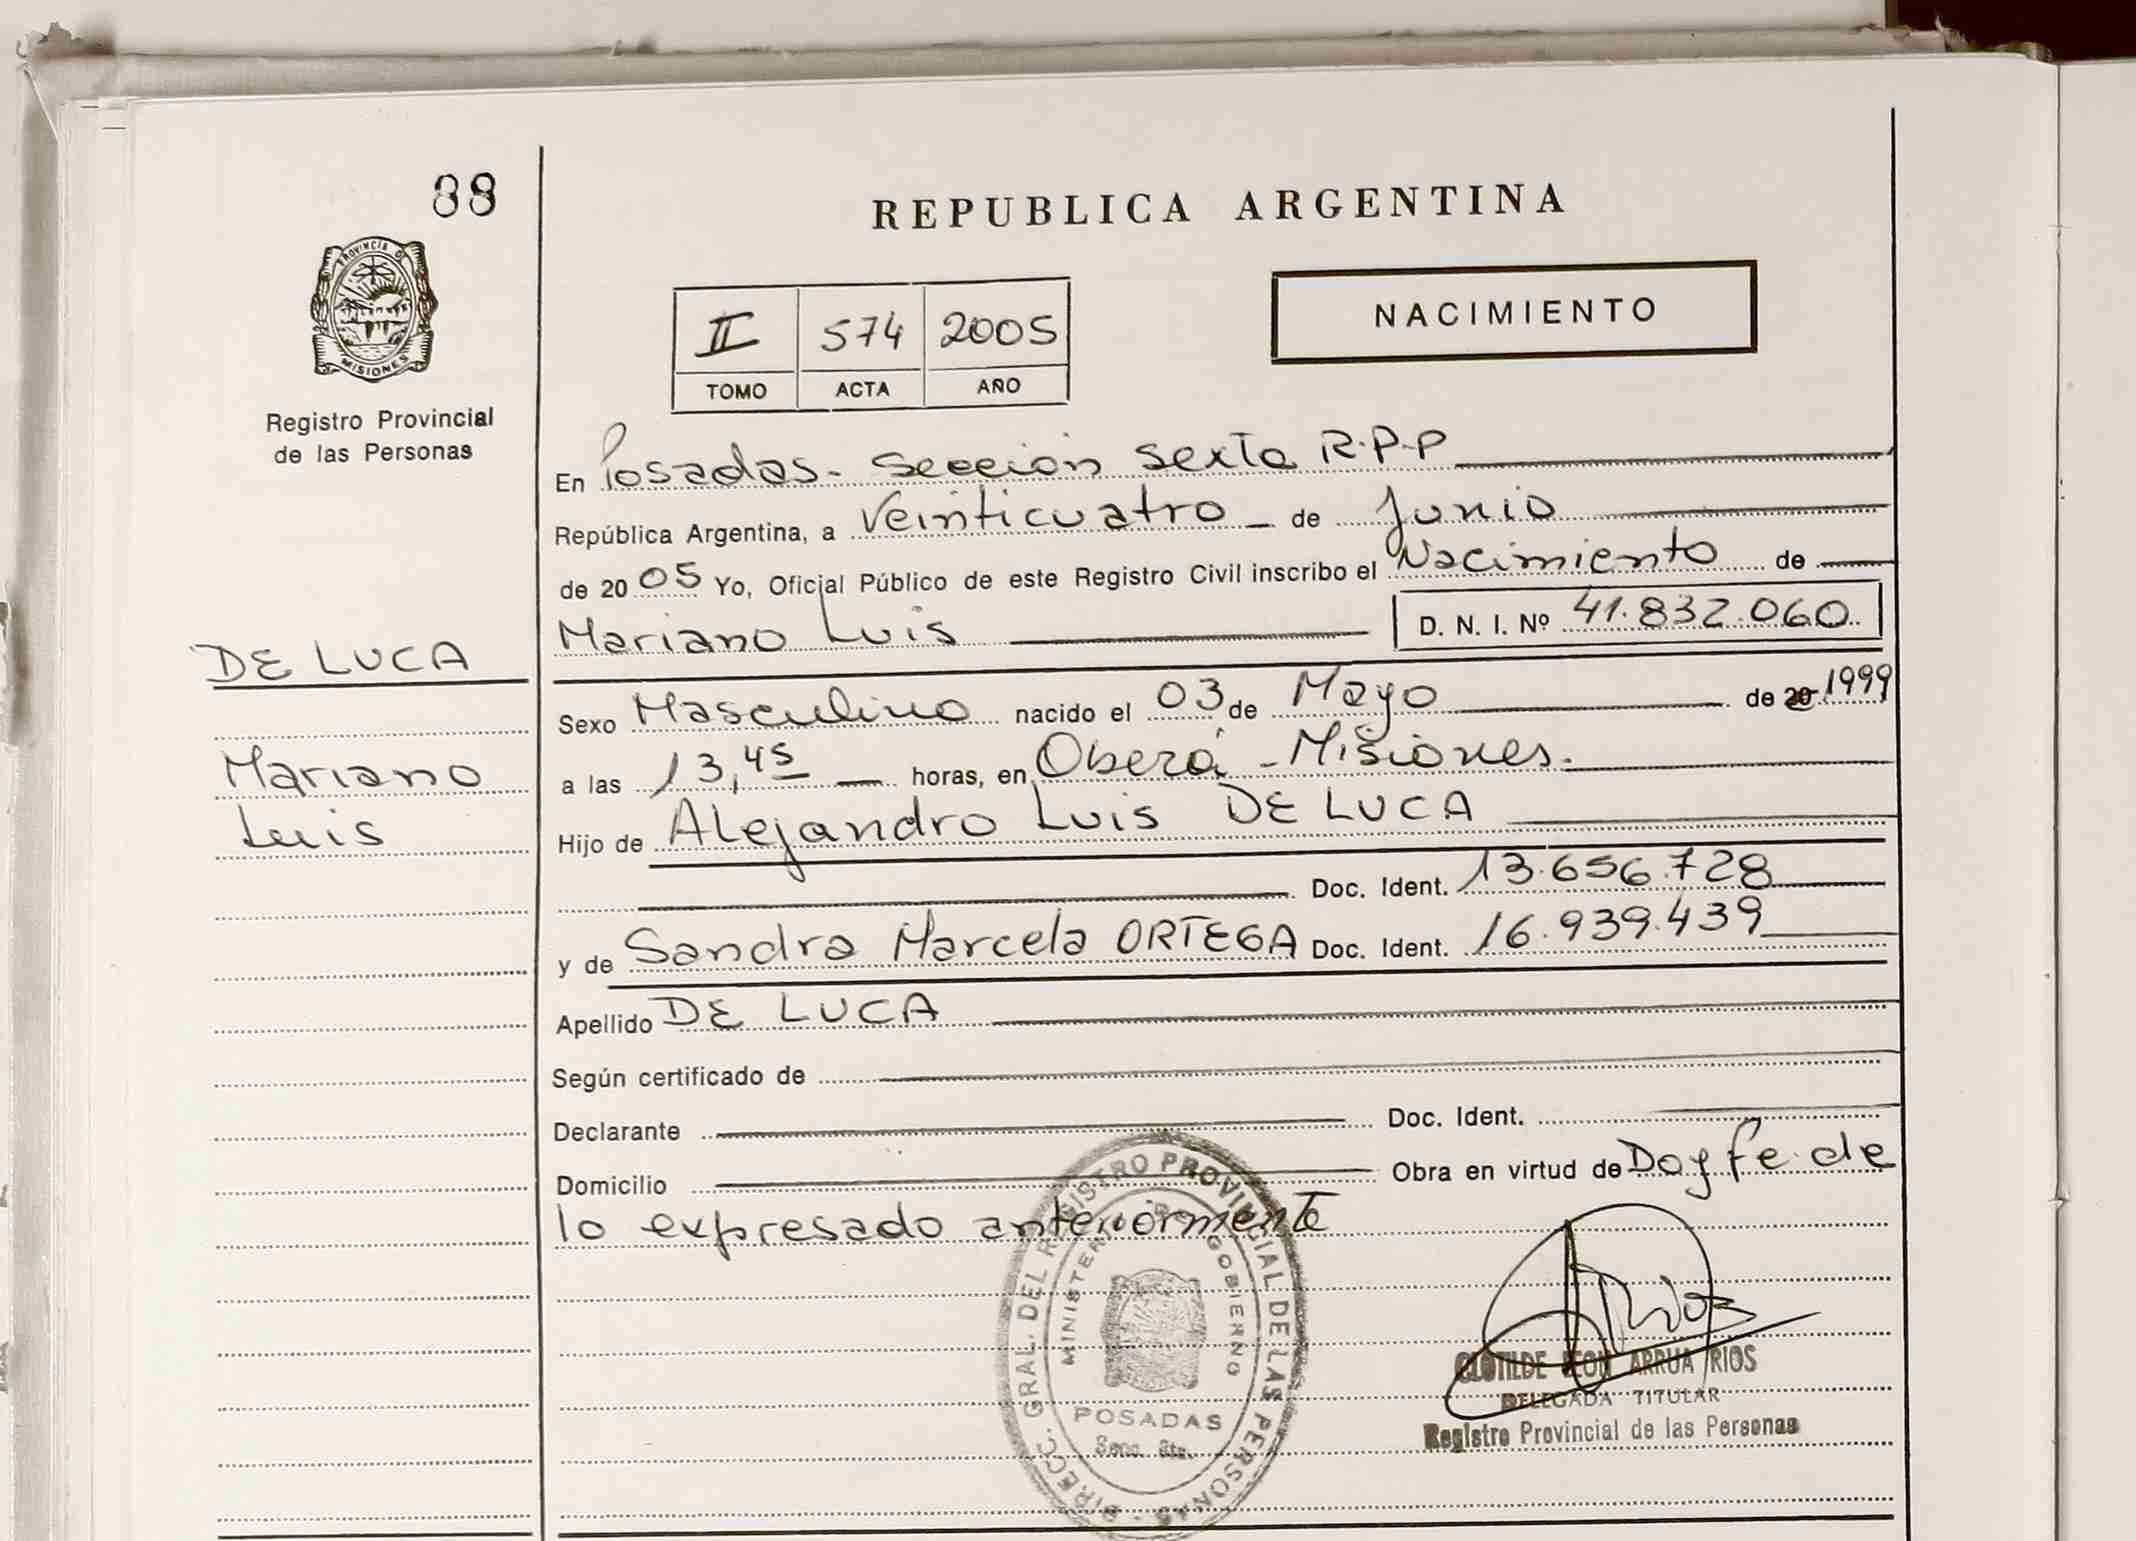 88
PROVINCIA DE
MISIONES
Registro Provincial
de las Personas
DE LUCA
Mariano
Luis
REPUBLICA ARGENTINA
NACIMIENTO
II 574 2005
TOMO ACTA AÑO
En Posadas - Sección Sexta R.P.P
República Argentina, a Veinticuatro de Junio
de 2005 Yo, Oficial Público de este Registro Civil inscribo el Nacimiento de
Mariano Luis D. N. I. Nº 41.832.060
Sexo Masculino nacido el 03 de Mayo de 20 1999
a las 13,45 horas, en Oberá - Misiones.
Hijo de Alejandro Luis DE LUCA
Doc. Ident. 13.656.728
y de Sandra Marcela ORTEGA Doc. Ident. 16.939.439
Apellido DE LUCA
Según certificado de
Declarante Doc. Ident.
Domicilio Obra en virtud de Doy fe de
lo expresado anteriormente
DIRECC. GRAL. DEL REGISTRO PROVINCIAL DE LAS PERSONAS
MINISTERIO DE GOBIERNO
POSADAS
Secc. 6ta.
CLOTILDE LEON ARRUA RIOS
DELEGADA TITULAR
Registro Provincial de las Personas